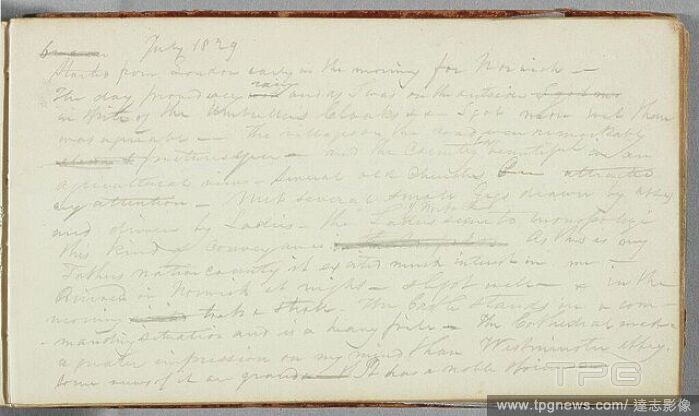 July 1829
Started from London early in the morning for Norwich —
The day proved very rainy and as I was on the outside
in spite of the Umbrellas Cloaks &c I got more wet than
was agreeable — The villages on the road were remarkably
picturesque — and the Country beautiful in an
agricultural view — Several old Churches attracted
my attention — Met several small Gigs drawn by
and driven by Ladies — the Ladies seem to monopolize
this kind of conveyance As this is my
Fathers native county it excited much interest in me —
Arrived in Norwich at night — slept well — & in the
morning took a stroll. The Castle stands in a com-
manding situation and is a heavy pile — The Cathedral made
a greater impression on my mind than Westminster Abbey.
Some views of it are grand It has a noble
TPG
www.tpgnews.com/達志影像